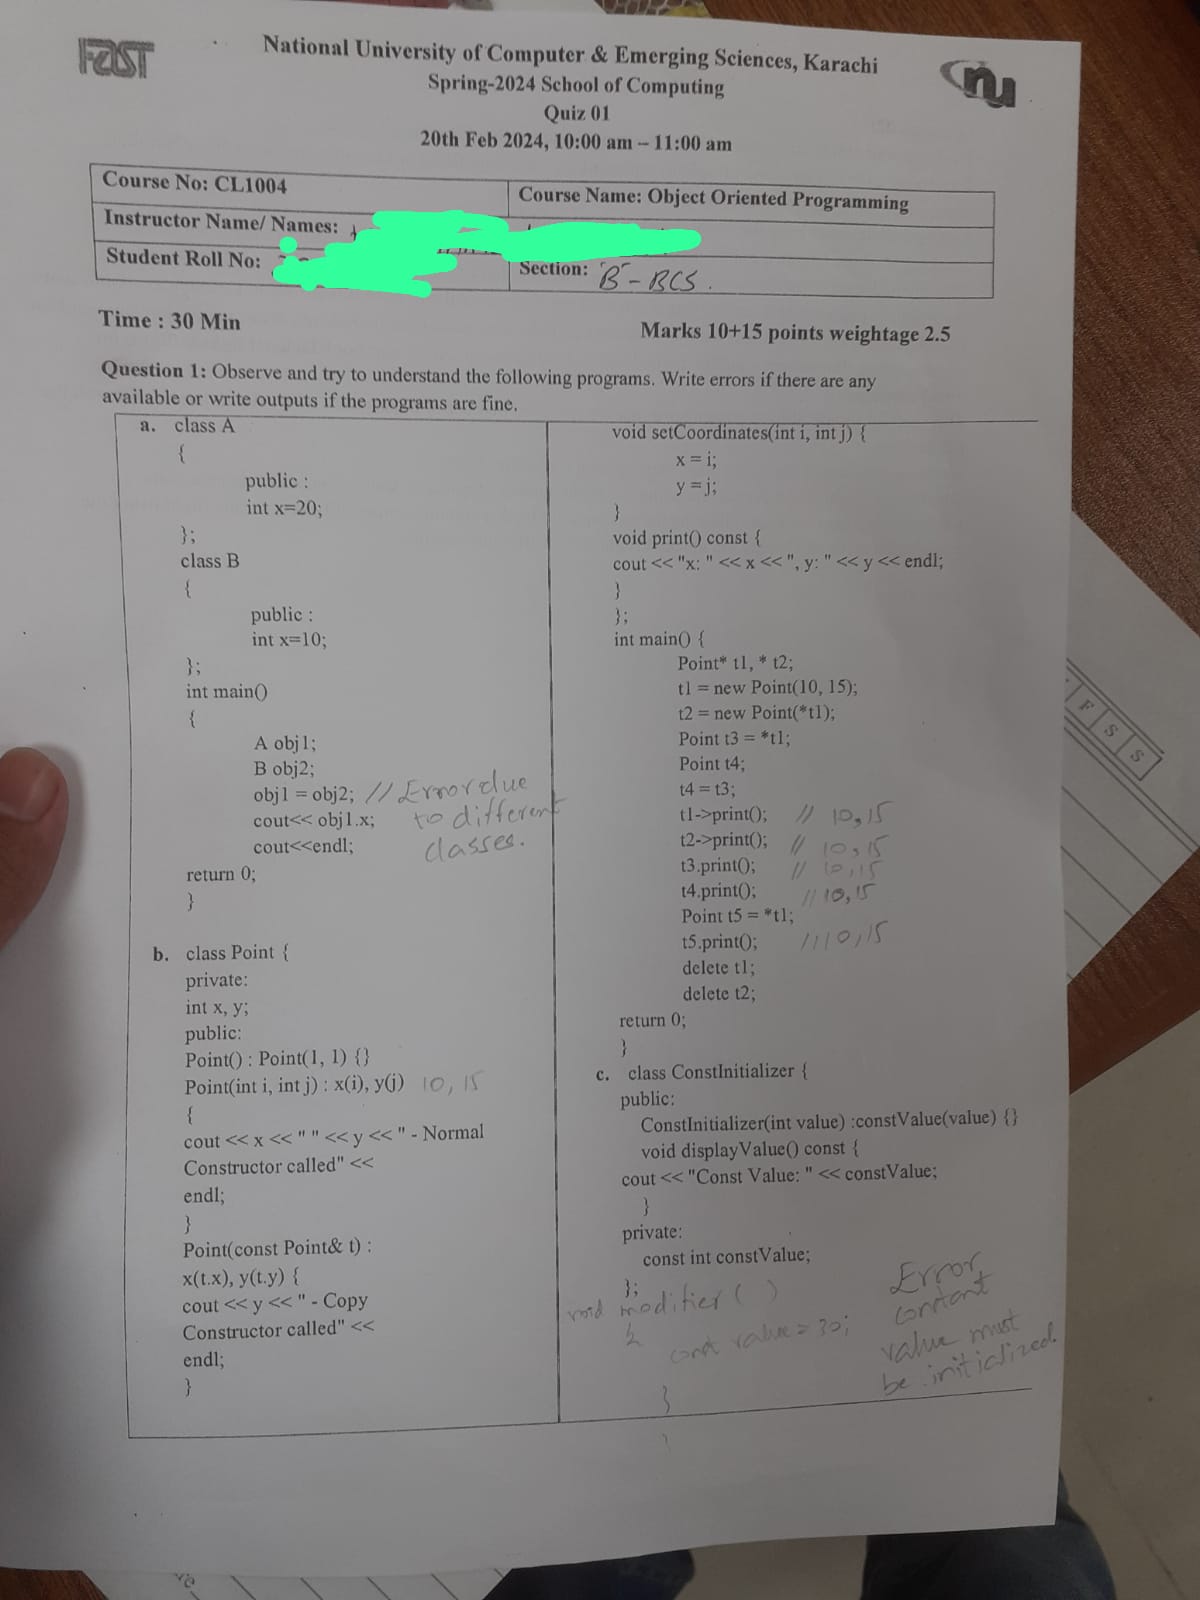 FAST
National University of Computer & Emerging Sciences, Karachi
Spring-2024 School of Computing
Quiz 01
20th Feb 2024, 10:00 am – 11:00 am
nu
Course No: CL1004
Course Name: Object Oriented Programming
Instructor Name/ Names:
Student Roll No:
Section: B - BCS.
Time : 30 Min
Marks 10+15 points weightage 2.5
Question 1: Observe and try to understand the following programs. Write errors if there are any
available or write outputs if the programs are fine.
a. class A
{
public :
int x=20;
};
class B
{
public :
int x=10;
};
int main()
{
A obj1;
B obj2;
obj1 = obj2; // Error due
cout<< obj1.x; to different
cout<<endl; classes.
return 0;
}
b. class Point {
private:
int x, y;
public:
Point() : Point(1, 1) {}
Point(int i, int j) : x(i), y(j) 10, 15
{
cout << x << " " << y << " - Normal
Constructor called" <<
endl;
}
Point(const Point& t) :
x(t.x), y(t.y) {
cout << y << " - Copy
Constructor called" <<
endl;
}
void setCoordinates(int i, int j) {
x = i;
y = j;
}
void print() const {
cout << "x: " << x << ", y: " << y << endl;
}
};
int main() {
Point* t1, * t2;
t1 = new Point(10, 15);
t2 = new Point(*t1);
Point t3 = *t1;
Point t4;
t4 = t3;
t1->print(); // 10,15
t2->print(); // 10,15
t3.print(); // 10,15
t4.print(); // 10,15
Point t5 = *t1;
t5.print(); // 10,15
delete t1;
delete t2;
return 0;
}
c. class ConstInitializer {
public:
ConstInitializer(int value) :constValue(value) {}
void displayValue() const {
cout << "Const Value: " << constValue;
}
private:
const int constValue;
};
void modifier ( )
{
const value = 30;
}
Error,
constant
value must
be initialized.
F S S